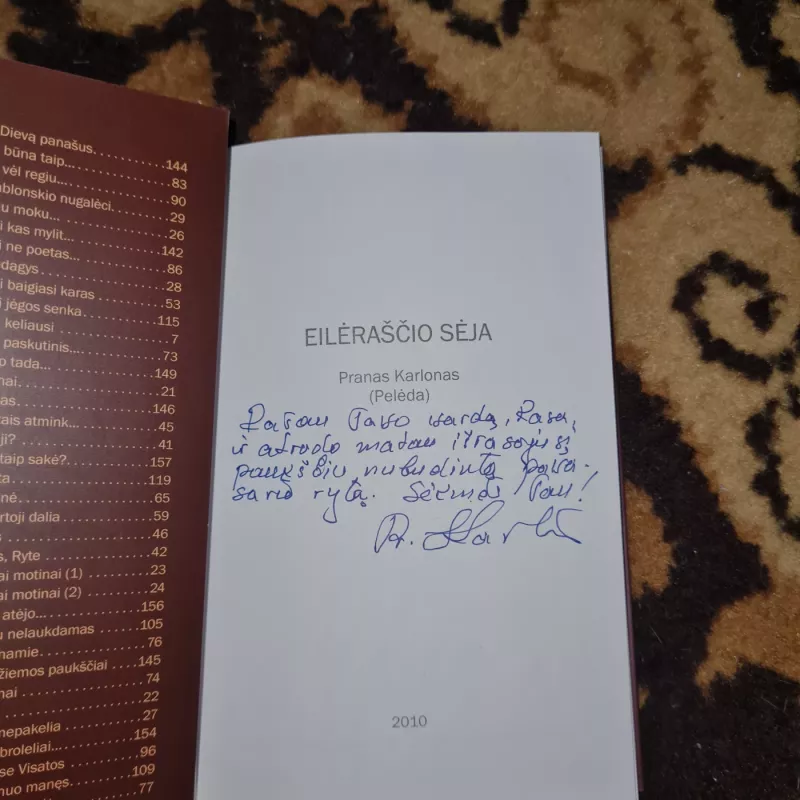 Dievą panašus. 144
būna taip... 83
vėl regiu... 90
blonskio nugalėci. 29
u moku... 26
i kas mylit... 142
i ne poetas... 86
edagys 28
i baigiasi karas 53
i jėgos senka 115
keliausi 7
paskutinis.. 73
o tada... 149
nai 21
as. 146
tais atmink... 45
ji? 41
taip sakė?. 157
ta 119
nė. 65
rtoji dalia 59
s 46
s, Ryte 42
ai motinai (1) 23
ai motinai (2) 24
atėjo... 156
u nelaukdamas 105
hamie 76
žiemos paukščiai 145
nai 74
22
nepakelia 27
broleliai... 154
se Visatos 96
nuo manęs 109
77
EILĖRAŠČIO SĖJA
Pranas Karlonas
(Pelėda)
Rašau Tavo vardą, Rasa,
ir atrodo matau
paukščių nubudintą pava-
sario rytą. Sėkmės Tau!
2010